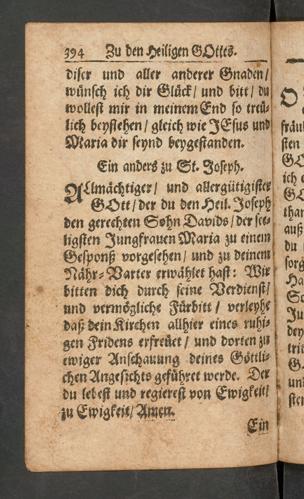 394 Zu den Heiligen GOttes.
diser und aller anderer Gnaden/
wünsch ich dir Glück/ und bitt/ du
wollest mir in meinem End so treü-
lich beystehen/ gleich wie JEsus und
Maria dir seynd beygestanden.
Ein anders zu St. Joseph.
ALlmächtiger/ und allergütigister
GOtt/ der du den Heil. Joseph
den gerechten Sohn Davids/ der see-
ligsten Jungfrauen Maria zu einem
Gesponß vorgesehen/ und zu deinem
Nähr-Vatter erwählet hast: Wir
bitten dich durch seine Verdienst/
und vermögliche Fürbitt/ verleyhe
daß dein Kirchen allhier eines ruhi-
gen Fridens erfreüet/ und dorten zu
ewiger Anschauung deines Göttli-
chen Angesichts geführet werde. Der
du lebest und regierest von Ewigkeit/
zu Ewigkeit/ Amen.
Ein